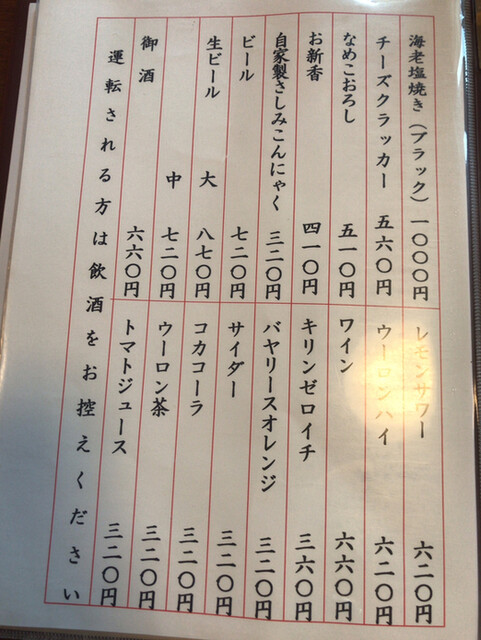 海老塩焼き（ブラック）一〇〇〇円
チーズクラッカー 五六〇円
なめこおろし 五一〇円
お新香 四一〇円
自家製さしみこんにゃく 三二〇円
ビール 七二〇円
生ビール 大 八七〇円
中 七二〇円
御酒 六六〇円
レモンサワー 六二〇円
ウーロンハイ 六二〇円
ワイン 六六〇円
キリンゼロイチ 三六〇円
バヤリースオレンジ 三二〇円
サイダー 三二〇円
コカコーラ 三二〇円
ウーロン茶 三二〇円
トマトジュース 三二〇円
運転される方は飲酒をお控えください